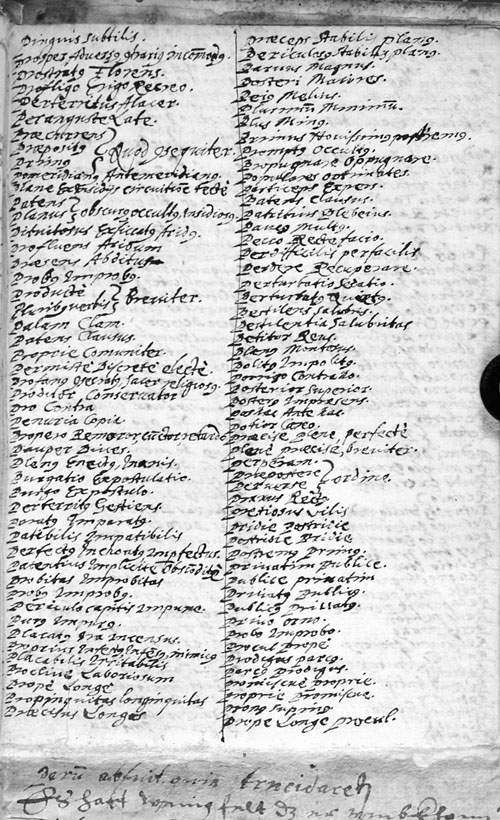 Pinguis Subtilis.
Prosper Adversꝰ
Prostratꝰ Florens.
Profligo Erigo Recreo.
Perterritus Alacer.
Peranguste Late.
Præcurrens
Præpositꝰ Quod sequitur.
Primꝰ
Pomeridianꝰ Antemeridianꝰ.
Plane
Patens
Planus obscurꝰ occultꝰ, insidiosꝰ
Pituitosus Exsiccatꝰ Aridꝰ.
Profluens Aridum
Præsens Absitus
Probꝰ Improbꝰ.
Productè
Pluribꝰ verbis Breviter.
Palam Clam.
Patens Clausus.
Proprie Comuniter.
Permistè Discretè electè.
Profanꝰ sacer religiosꝰ
Proditor Conservator
Pro Contra
Penuria Copia
Propero Remoror
Pauper Dives.
Plenꝰ Inanis.
Purgatio Expostulatio.
Purgo Expostulo.
Perterritꝰ Gestiens.
Paratꝰ Imparatꝰ.
Patibilis Impatibilis
Perfectꝰ Inchoatꝰ Impfectus.
Patentius Implicitè Obscoditè
Probitas Improbitas
Probꝰ Improbꝰ.
Periculo capitis Impune.
Purꝰ Impurꝰ.
Placatꝰ Ira incensus.
Propitius inimicꝰ
Placabilis
Proclive Laboriosum
Propè Longe
Propinquitas longinquitas
Præcisus Longus
Præceps Stabilis planꝰ.
Periculosꝰ Stabilis planꝰ.
Parvus Magnus.
Posteri Maiores.
Peiꝰ Melius.
Plurimũ Minimũ.
Plus Minꝰ.
Primus Novissimꝰ postremꝰ.
Promptꝰ Occultꝰ.
Propugnare Oppugnare.
Populares optimates.
Particeps Expers.
Patens clausus.
Patritius Plebeius.
Pauci Multꝰ.
Pecco Recte facio.
Perdifficilis perfacilis
Perdere Recuperare.
Perturbatio Sedatio.
Perturbatꝰ Quietꝰ.
Pestilens Salubris.
Pestilentia Salubritas
Petitor Reus.
Planꝰ Montosus.
Politꝰ Impolitꝰ.
Porrigo Contraho.
Posterior Superior.
Posterꝰ
Posthac Ante hac.
Potior Careo.
Præcise Plene, perfectè
Plenè præcise, breviter.
Perperam.
Præpostere ordine.
Perverse
Pravus Rectꝰ
Pretiosus vilis
Pridie Postridie
Postridie Pridie
Postremꝰ Primꝰ.
Privatim Publice.
Publice privatim
Privatꝰ Publicꝰ.
Publicꝰ Privatꝰ.
Privo orno.
Probo Improbo.
Procul Propè
Prodigus parcꝰ.
Parcꝰ Prodigus.
Promiscuè Proprie.
Proprie Promiscue.
Pronꝰ Supinꝰ
Prope Longe procul.
Parũ abfuit quin trucidaret